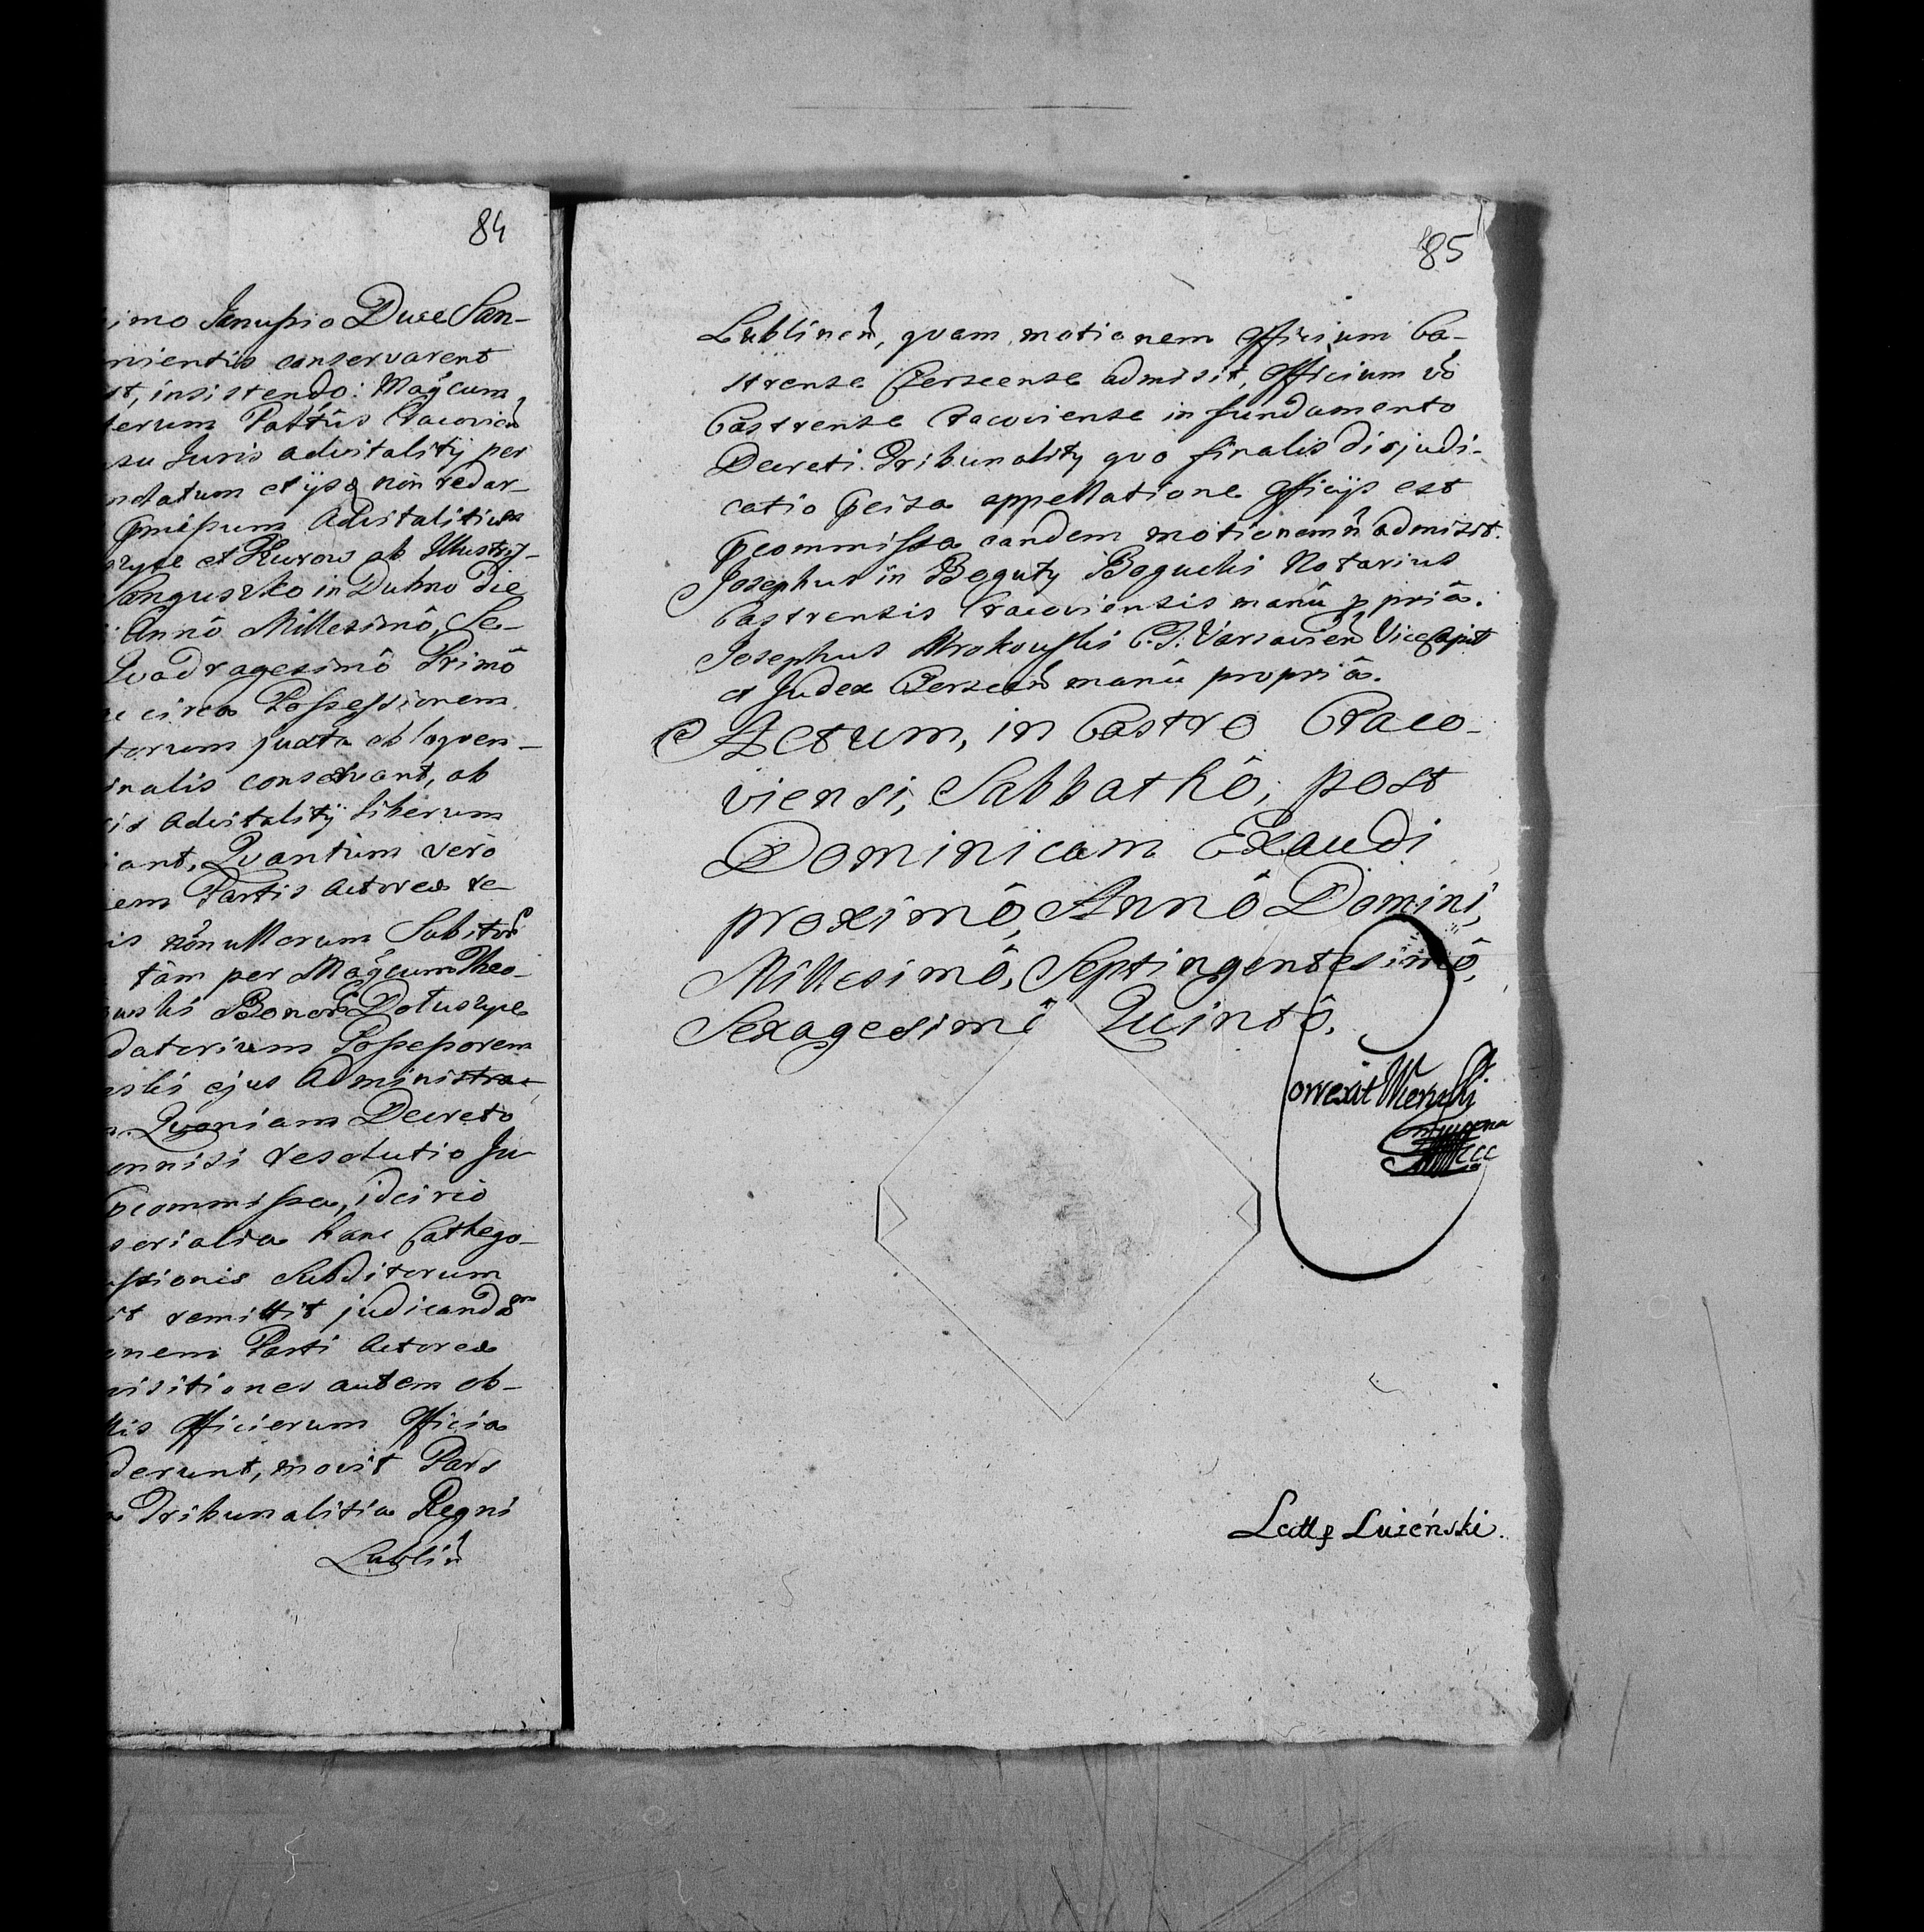 84
imo Janussio Duce San-
nientiis conservarent
st, insistendo: Magcum
terum Pattus Cracovien
su Juris advitalitÿ per
ndatum et ijsq non redar-
praemissum Advitalitium
et Kurow ab Illustris-
Sanguszko in Dubno Die
Annô Millesimô, Se-
Quadragesimô Primô
circa Possessionem
torum juxta obloquen-
inalis conservant, ab
advitalitÿ liberum
iant, Quantum verò
em Partis Actoreae re-
is nônullorum Subitor
tàm per Magcum Theo-
uski Bonor Doluszyce
datorium Possessorem
nski ejus Administra-
Quoniam Decreto
omnisi resolutio Ju-
pcommissa, idcirco
serialia hanc Cathego-
ssionis Subditorum
it remittit judicandam
onem Parti Actoreae
visitiones autem ob-
llis Officiorum Officia
derunt, movit Pars
Tribunalitia Regni
Lublin
85
Lublinen, quam motionem Officium Ca-
strense Czerscense admisit, Officium vô
Castrense Cracoviense in fundamento
Decreti Tribunalitÿ quo finalis disjudi-
catio pcisa appellatione Officijs est
pcommissa eandem motionem ñ admisit.
Josephus in Boguty Bogucki Notarius
Castrensis Cracoviensis manû ppriâ.
Josephus Mrokowski C. T. Varsavien Vicecapit
et Judex Czerscen manû propriâ.
Actum, in Castro Craco-
viensi, Sabbathô, post
Dominicam Exaudi
proximô, Annô Domini,
Millesimô, Septingentesimô,
Sexagesimô Quintô.
Correxit
Lectt p Luzeński.